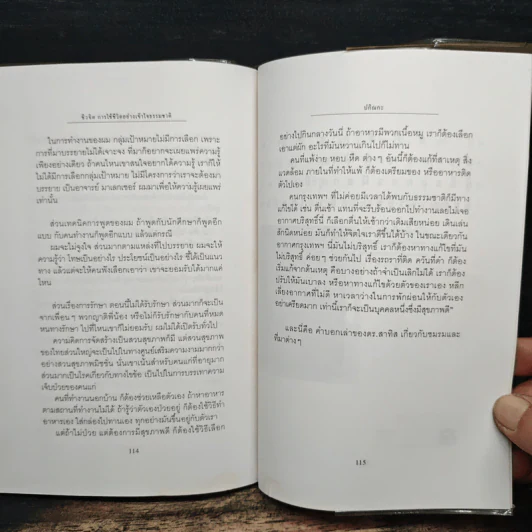 ชีวจิต การใช้ชีวิตอย่างเข้าใจธรรมชาติ
ในการทำงานของผม กลุ่มเป้าหมายไม่มีการเลือก เพราะ
การที่มาบรรยายไม่ได้เจาะจง ที่มาก็อยากจะเผยแพร่ความรู้
เพียงอย่างเดียว ถ้าคนไหนเขาสนใจอยากได้ความรู้ เราก็ให้
ไม่ได้มีการเลือกกลุ่มเป้าหมาย ไม่มีโครงการว่าเราจะต้องมา
บรรยาย เป็นอาจารย์ มาเลกเชอร์ ผมมาเพื่อให้ความรู้เผยแพร่
เท่านั้น
ส่วนเทคนิคการพูดของผม ถ้าพูดกับนักศึกษาก็พูดอีก
แบบ กับคนทำงานก็พูดอีกแบบ แล้วแต่กรณี
ผมจะไม่จูงใจ ส่วนมากตามแหล่งที่ไปบรรยาย ผมจะให้
ความรู้ว่า โทษเป็นอย่างไร ประโยชน์เป็นอย่างไร ชี้ให้เป็นแนว
ทาง แล้วแต่จะให้คนฟังเลือกเอาว่า เขาจะยอมรับได้มากแค่
ไหน
ส่วนเรื่องการรักษา ตอนนี้ไม่ได้รับรักษา ส่วนมากก็จะเป็น
จากเพื่อน ๆ พวกญาติพี่น้อง หรือไม่ก็รับรักษากับคนที่หมด
หนทางรักษา ไปที่ไหนเขาก็ไม่ยอมรับ ผมไม่ได้เปิดรับทั่วไป
ความคิดการจัดสร้างเป็นสวนสุขภาพก็มี แต่สวนสุขภาพ
ของไทยส่วนใหญ่จะเป็นไปทางศูนย์เสริมความงามมากกว่า
อย่างสวนสุขภาพมิชชั่น นั่นเขาเน้นสำหรับคนแก่ที่อายุมาก
ส่วนมากเป็นโรคเกี่ยวกับทางไขข้อ เป็นไปในการบรรเทาความ
เจ็บป่วยของคนแก่
คนที่ทำงานนอกบ้าน ก็ต้องช่วยเหลือตัวเอง ถ้าหาอาหาร
ตามสถานที่ทำงานไม่ได้ ถ้ารู้ว่าตัวเองป่วยอยู่ ก็ต้องใช้วิธีทำ
อาหารเอง ใส่กล่องไปทานเอง ทุกอย่างมันขึ้นอยู่กับตัวเรา
แต่ถ้าไม่ป่วย แต่ต้องการมีสุขภาพดี ก็ต้องใช้วิธีเลือก
114
ปกิณกะ
อย่างไปกินกลางวันนี้ ถ้าอาหารมีพวกเนื้อหมู เราก็ต้องเลือก
เอาแต่ผัก อะไรที่มันหวานเกินไปก็ไม่ทาน
คนที่แพ้ง่าย หอบ หืด ต่าง ๆ อันนี้ก็ต้องแก้ที่สาเหตุ สิ่ง
แวดล้อม ภายในที่ทำให้แพ้ ก็ต้องเตรียมของ หรืออาหารติด
ตัวไปเอง
คนกรุงเทพฯ ที่ไม่ค่อยมีเวลาได้พบกับธรรมชาติก็มีทาง
แก้ไขได้ เช่น ตื่นเช้า แทนที่จะรีบร้อนออกไปทำงานเลยไม่เจอ
อากาศบริสุทธิ์นี้ ก็เลือกตื่นให้เช้ากว่าเดิมเสียหน่อย เดินเล่น
สักนิดหน่อย มันก็ทำให้จิตใจเราดีขึ้นได้บ้าง ในขณะเดียวกัน
อากาศกรุงเทพฯ นี้ มันไม่บริสุทธิ์ เราก็ต้องหาทางแก้ไขที่มันไม่
บริสุทธิ์ ค่อยๆ ช่วยกันไป เรื่องรถราที่ติด ควันที่ดำ ก็ต้อง
เริ่มแก้จากต้นเหตุ คือบางอย่างถ้าจำเป็นเลิกไม่ได้ เราก็ต้อง
ปรับให้มันเบาลง หรือหาทางแก้ไขด้วยตัวของเราเอง หลีก
เลี่ยงอากาศที่ไม่ดี หาเวลาว่างในการพักผ่อนให้กับตัวเอง
อย่าเครียดมาก เท่านี้เราก็จะเป็นบุคคลหนึ่งซึ่งมีสุขภาพดี"
และนี่คือ คำบอกเล่าของดร.สาทิส เกี่ยวกับชมรมและ
ที่มาต่างๆ
115